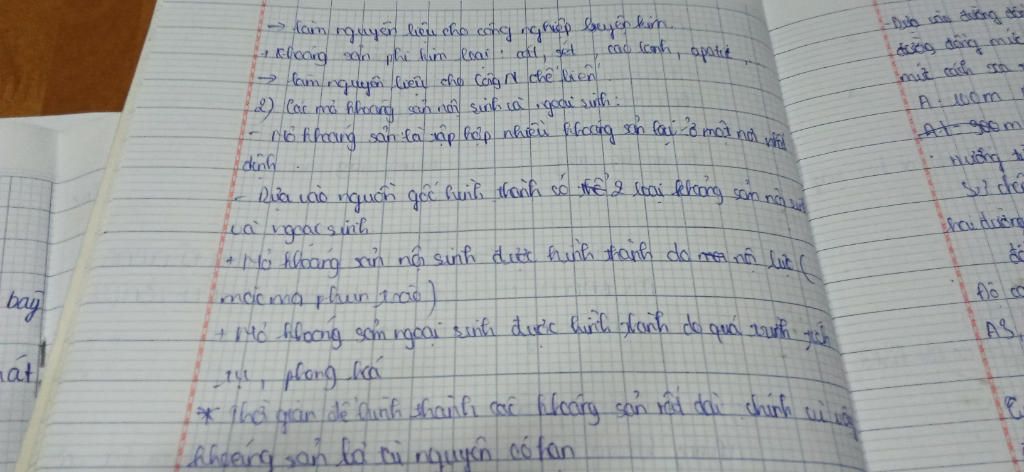 → làm nguyên liệu cho công nghiệp luyện kim.
+ Khoáng sản phi kim loại: cát, sét, cao lanh, apatit,
→ làm nguyên liệu cho công N chế biến
2) Các mỏ khoáng sản nội sinh và ngoại sinh:
- Mỏ khoáng sản là tập hợp nhiều khoáng sản lại ở một nơi nhất
định.
- Dựa vào nguồn gốc hình thành có thể 2 loại khoáng sản nội sinh
và ngoại sinh
+ Mỏ khoáng sản nội sinh được hình thành do nội lực (
mác ma phun trào)
+ Mỏ khoáng sản ngoại sinh được hình thành do quá trình tích
tụ, phong hoá
* Thời gian để hình thành các khoáng sản rất dài chính vì vậy
khoáng sản là tài nguyên có hạn
bay
át
Dựa vào đường
đường đồng mức
mức cách
A: 100m
A1 900m
hướng
Sự
hai đường
Đỏ